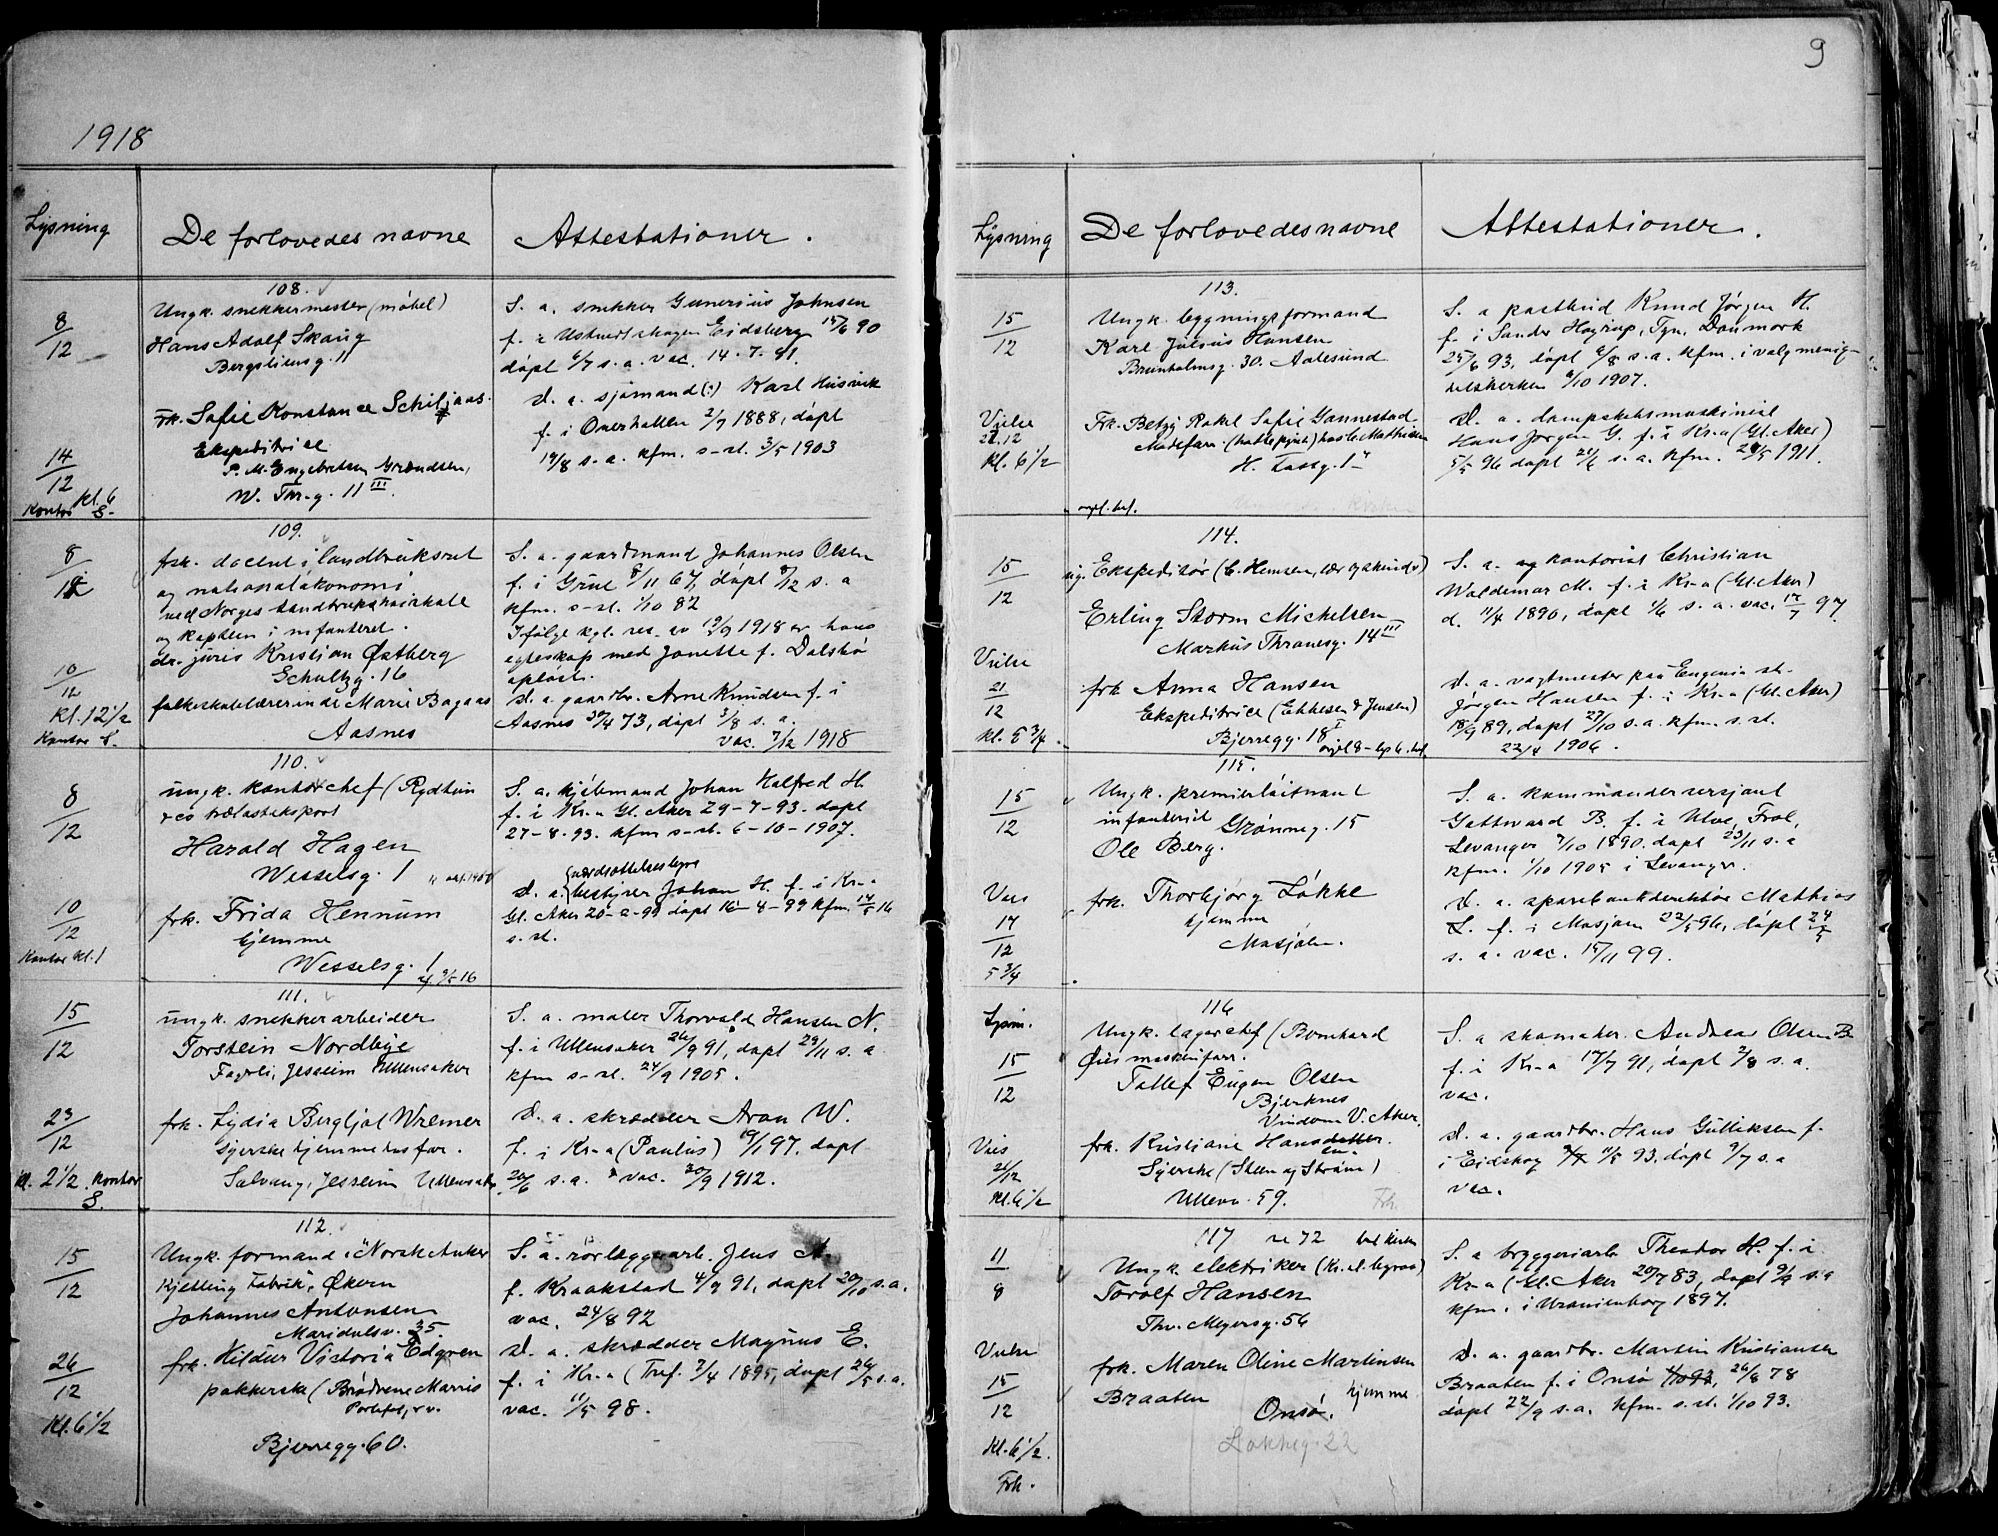 1918
Lysning
De forlovedes navne
Attestationer.
8/12
14/12
Kontor Kl. 6
S.
108.
Ungk. snekkermester (møbel)
Hans Adolf Skaug
Bergsliensg. 11
Frk. Sofie Konstance Schiljaas.
Ekspeditrise
P. M. Engebretsen Grændsen,
W. Thr.g. 11 III.
S. a. snekker Gunerius Johnsen
f. i Eidsberg 15/6 90
døpt 6/7 s. a. vac. 14.7.91.
D. a. sjømand (:) Karl Husvik
f. i Overhallen 2/7 1888, døpt
19/8 s. a. kfm. s-st. 3/5 1903
8/12
10/12
Kl. 12 1/2
Kontor S.
109.
frk. docent i landbruksret
og nationaløkonomi
ved Norges Landbrukshøiskole
og kaptein i infanteriet.
dr. juris Kristian Østberg
Schultzg. 16
folkeskolelærerinde Marie Bagaas
Aasnes
S. a. gaardmand Johannes Olsen
f. i Grue 8/11 67, døpt 8/12 s. a
kfm. s-st. 1/10 82
Ifølge kgl. res. av 19/9 1918 er hans
egteskap med Janette f. Dalsbø
opløst.
D. a. gaardbr. Arne Knudsen f. i
Aasnes 30/4 73, døpt 3/8 s. a.
vac. 7/12 1918
8/12
10/12
Kontor kl. 1
110.
ungk. kontorchef (Rydtun
& co trælasteksport
Harald Hagen
Wesselsg. 1
frk. Frida Hennum
hjemme
Wesselsg. 1
S. a. hjelmand Johan Halfred H.
f. i Kr.a Gl. Aker 29-7-93. døpt
27-8-93. kfm s-st. 6-10-1907.
D. a. bestyrer Johan H. f. i Kr.a
Gl. Aker 20-2-99 døpt 16-4-99 kfm. 14/5 16
s. st.
15/12
23/12
Kl. 2 1/2. Kontor
S.
111.
ungk. snekkerarbeider
Torstein Nordbye
Fagerli, Jesseim Ullensaker
frk. Lydia Bergljot Wremer
syerske hjemme hos far.
Solvang, Jesseim Ullensak.
S. a. maler Thorvald Hansen N.
f. i Ullensaker 26/9 91, døpt 29/11 s. a
kfm s-st. 24/9 1905.
D. a. skrædder Aron W.
f. i Kr-a (Paulus) 19/1 97. døpt
20/6 s. a. vac. 30/9 1912.
15/12
26/12
Kl. 6 1/2
112.
Ungk. formand i "Norsk Anker
Kjetting Fabrik", Økern
Johannes Antonsen
Maridalsv. 35.
frk. Hildur Victoria Edgren
pakkerske (Brødrene Marris
Bjerregg. 60.
S. a. rørlæggerarb. Jens A.
f. Kraakstad 4/9 91, døpt 20/10 s. a.
vac. 24/8 92
D. a. skrædder Magnus E.
f. i Kr.a (Tref. 3/4 1895, døpt 26/5 s. a.
vac. 1/5 98.
9
Lysning
De forlovedes navne
Attestationer.
15/12
Vielse
21.12
Kl. 6 1/2
113.
Ungk. bygningsformand
Karl Julius Hansen
Brunholmsg. 30. Aalesund
Frk. Betzy Rakel Sofie Gannestad
H. Tastg. 1
orgl. bet.
S. a postbud Knud Jørgen H.
f. i Sønder Høgrup, Fyn, Danmark
25/6 93, døpt 6/8 s. a. kfm. i valgmenig-
hetskirken 6/10 1907.
D. a. dampskibsmaskinist
Hans Jørgen G. f. i Kr.a (Gl. Aker)
5/5 96 døpt 21/6 s. a. kfm. 28/5 1911.
15/12
Vielse
21/12
kl. 5 3/4.
114.
ug. Ekspeditør (C. Hemsen, lær og skind)
Erling Storm Michelsen
Markus Thranesg. 14 III
frk Anna Hansen
Ekspeditrice (Ekkesen & Jensen)
Bjerregg. 18 I
S. a. kontorist Christian
Waldemar M. f. i Kr-a (Gl. Aker)
d. 11/4 1890, døpt 1/6 s. a. vac. 17/7 97.
D. a. vagtmester paa Eugenia st.
Jørgen Hansen f. i Kr-a (Gl. Aker)
18/9 89, døpt 27/10 s. a. kfm. s. st.
22/4 1906.
15/12
Vies
17/12
5 3/4
115.
Ungk. premierløitnant
infanteriet Grønneg. 15
Ole Berg.
frk. Thorbjørg Løkke
hjemme
Mosjøen.
S. a. kommandersersjant
Gottward B. f. i Ulve, Frol,
Levanger 7/10 1890. døpt 23/11 s. a
kfm. 1/10 1905 i Levanger.
D. a. sparebankdirektør Mathias
L. f. i Mosjøen 22/5 96, døpt 24/5
s. a. vac. 15/11 99.
Lysn.
15/12
Vies
26/12
Kl. 6 1/2
116
Ungk. lagerchef (Bernhard
Øies maskinforr.
Tallef Eugen Olsen
Bjerknes
Vindern V. Aker.
frk. Kristiane Hansdatter.
Syerske (Steen og Strøm)
Ullevv. 59.
Frk.
S. a skomaker. Andreas Olsen B
f. i Kr-a 17/7 91, døpt 2/8 s. a.
vac.
D. a. gaardbr. Hans Gulliksen f.
i Eidskog 11/5 93, døpt 9/7 s. a
vac.
11/8
Vielse
15/12
Kl. 6 1/2.
Frk.
117 se 72
Ungk. elektriker
Torolf Hansen
Thv. Meyersg. 56
frk. Maren Oline Martinsen
Braaten hjemme
Onsø.
Løkkeg. 22
S. a bryggeriarb Theodor H. f. i
Kr-a (Gl. Aker 20/7 83, døpt 9/9 s. a
kfm. i Uranienborg 1897.
D. a. gaardbr. Martin Kristiansen
Braaten f. i Onsø 26/8 78
døpt 22/9 s. a. kfm. s. st. 1/10 93.